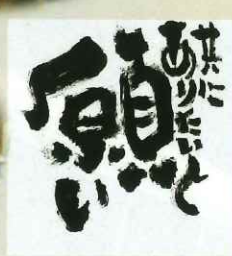 共に
ありたいと
願い